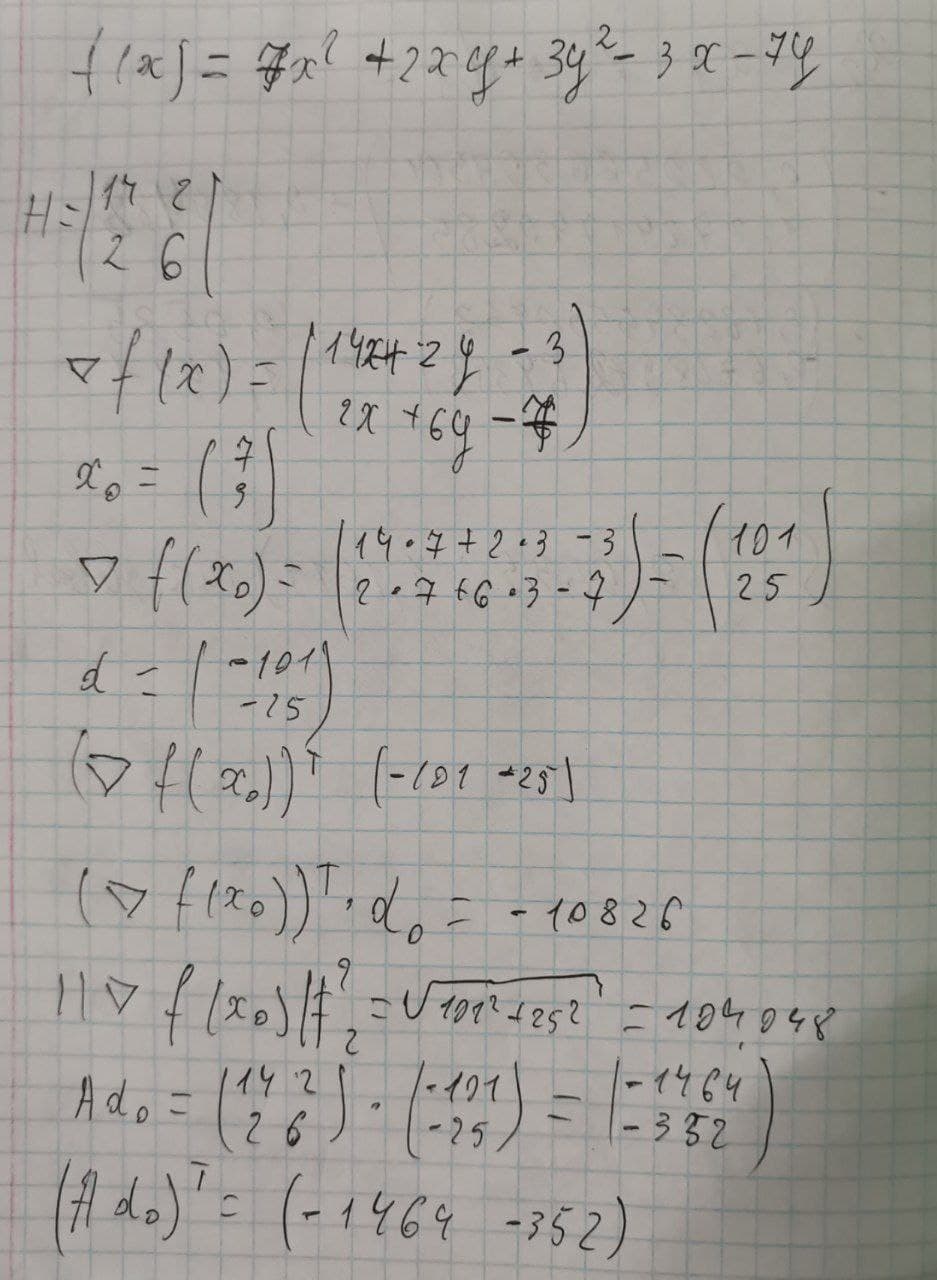 f(x) = 7x² + 2xy + 3y² - 3x - 7y
H = |14 2|
|2 6|
∇f(x) = (14x + 2y - 3)
(2x + 6y - 7)
x₀ = (7)
(3)
∇f(x₀) = (14·7 + 2·3 - 3) = (101)
(2·7 + 6·3 - 7) (25)
d = (-101)
(-25)
(∇f(x₀))ᵀ (-101 -25)
(∇f(x₀))ᵀ · d₀ = -10826
||∇f(x₀)||²₂ = √(101² + 25²) = 104,048
Ad₀ = (14 2) · (-101) = (-1464)
(2 6) (-25) (-352)
(Ad₀)ᵀ = (-1464 -352)